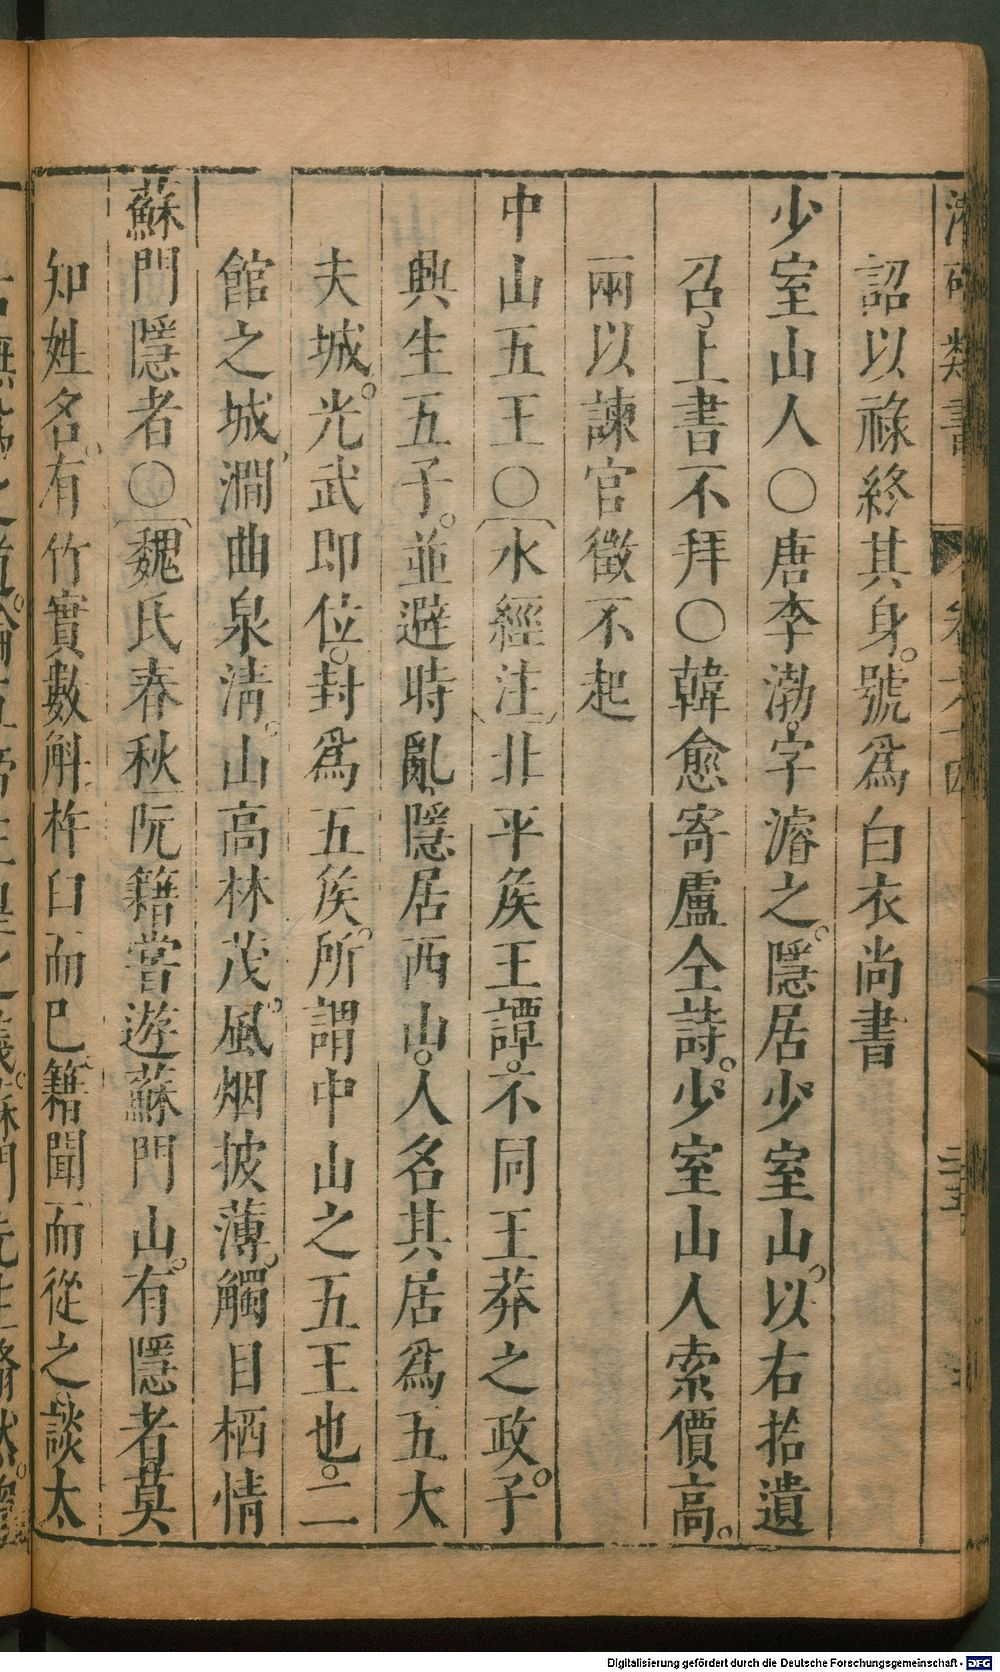 詔以祿終其身。號爲白衣尚書
少室山人○唐李渤。字濬之。隱居少室山。以右拾遺
召。上書不拜○韓愈寄盧仝詩。少室山人索價高。
兩以諫官徵不起
中山五王○〔水經注〕北平矦王譚。不同王莽之政。子
興生五子。並避時亂。隱居西山。人名其居爲五大
夫城。光武即位。封爲五矦。所謂中山之五王也。二
館之城澗曲泉淸。山高林茂。風烟披薄。觸目栖情
蘇門隱者○〔魏氏春秋〕阮籍嘗遊蘇門山。有隱者。莫
知姓名。有竹實數斛杵臼而已。籍聞而從之。談太
Digitalisierung gefördert durch die Deutsche Forschungsgemeinschaft - DFG